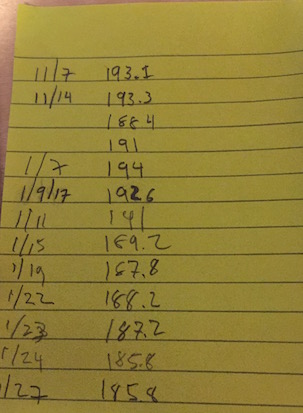 11/7 193.1
11/14 193.3
188.4
191
1/7 194
1/9/17 192.6
1/11 191
1/15 189.2
1/19 187.8
1/22 188.2
1/23 187.2
1/24 185.8
1/27 185.8